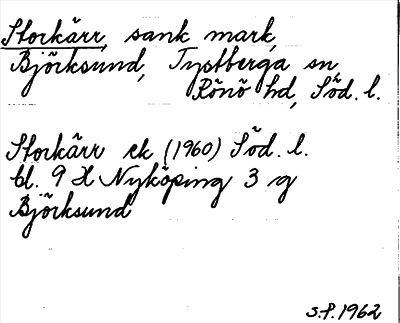 Storkärr, sank mark,
Björksund, Tystberga sn,
Rönö hd, Söd. l.
Storkärr ek (1960) Söd. l.
bl. 9 H Nyköping 3 g
Björksund
S.F. 1962